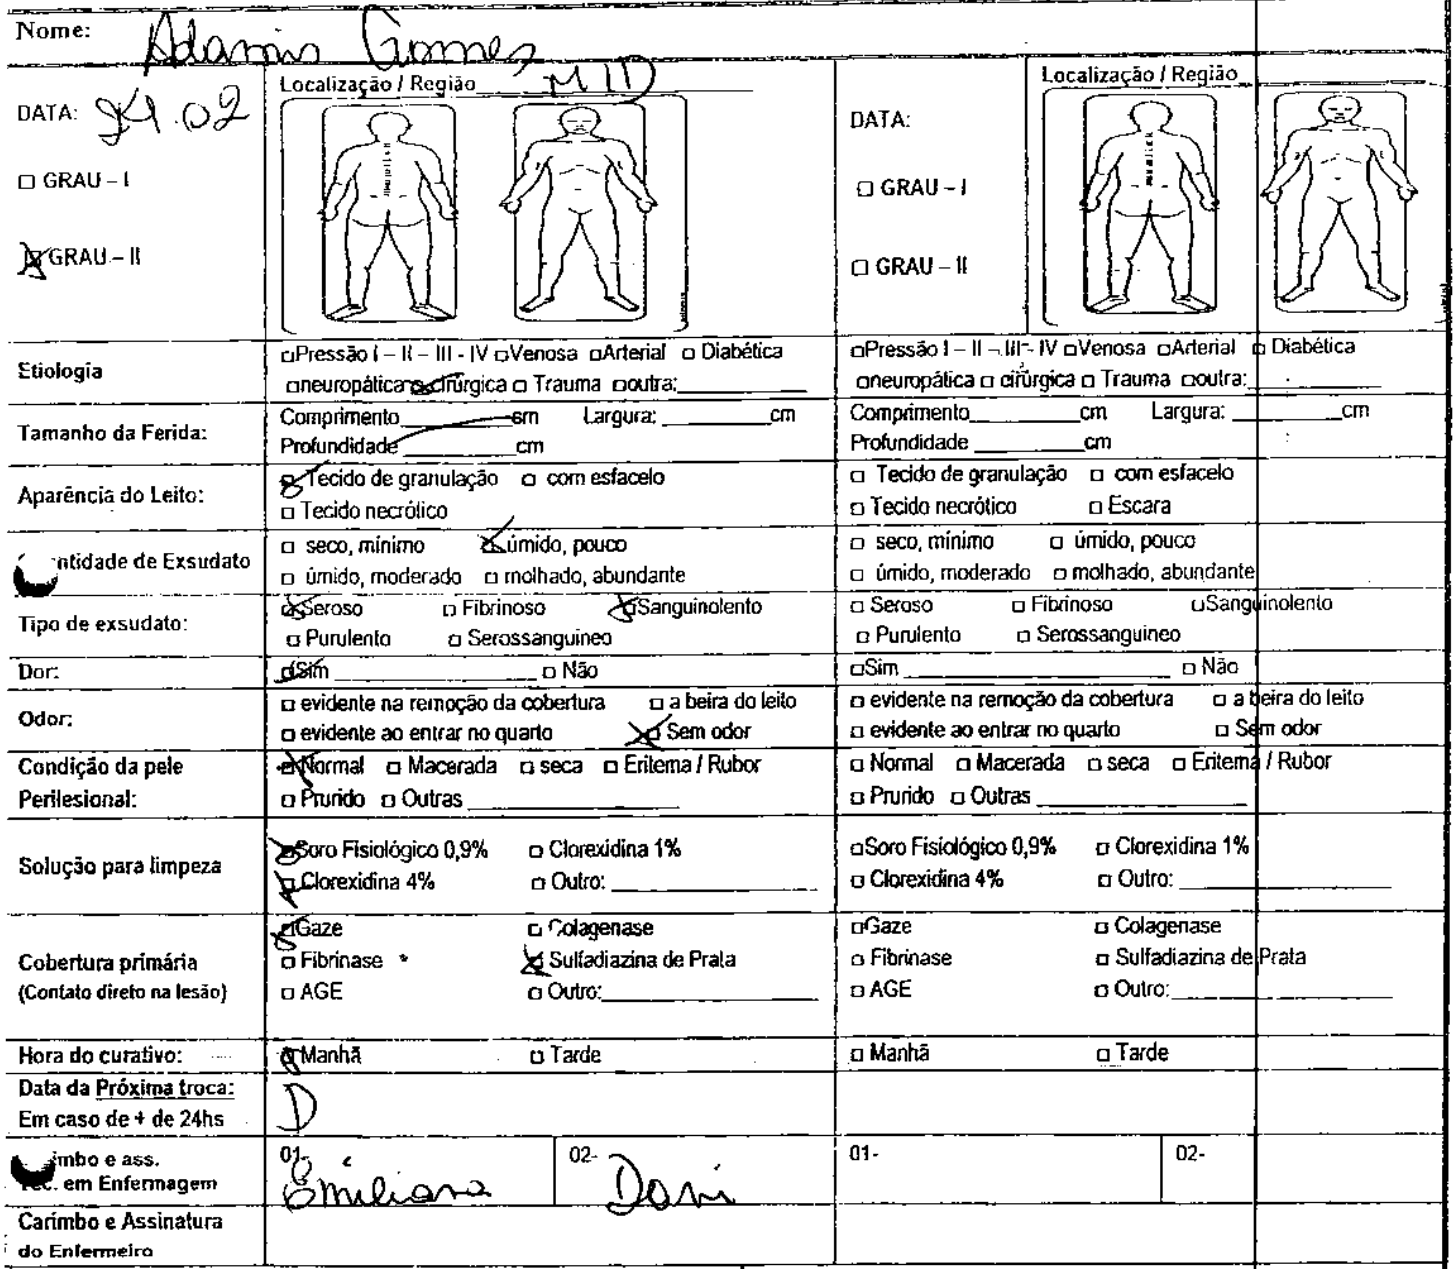 Nome: Gomes
Localização / Região MID
Localização / Região
DATA: 24.02
DATA:
□ GRAU – I
□ GRAU – I
☒ GRAU – II
□ GRAU – II
Etiologia
□Pressão I – II – III - IV □Venosa □Arterial □ Diabética
□neuropática ☒ cirúrgica □ Trauma □outra:
□Pressão I – II – III - IV □Venosa □Arterial □ Diabética
□neuropática □ cirúrgica □ Trauma □outra:
Tamanho da Ferida:
Comprimento cm Largura: cm
Profundidade cm
Comprimento cm Largura: cm
Profundidade cm
Aparência do Leito:
☒ Tecido de granulação □ com esfacelo
□ Tecido necrótico
□ Tecido de granulação □ com esfacelo
□ Tecido necrótico □ Escara
ntidade de Exsudato
□ seco, mínimo ☒ úmido, pouco
□ úmido, moderado □ molhado, abundante
□ seco, mínimo □ úmido, pouco
□ úmido, moderado □ molhado, abundante
Tipo de exsudato:
☒ Seroso □ Fibrinoso ☒ Sanguinolento
□ Purulento □ Serossanguineo
□ Seroso □ Fibrinoso □Sanguinolento
□ Purulento □ Serossanguineo
Dor:
☒Sim □ Não
□Sim □ Não
Odor:
□ evidente na remoção da cobertura □ a beira do leito
□ evidente ao entrar no quarto ☒ Sem odor
□ evidente na remoção da cobertura □ a beira do leito
□ evidente ao entrar no quarto □ Sem odor
Condição da pele
Perilesional:
☒ Normal □ Macerada □ seca □ Eritema / Rubor
□ Prurido □ Outras
□ Normal □ Macerada □ seca □ Eritema / Rubor
□ Prurido □ Outras
Solução para limpeza
☒Soro Fisiológico 0,9% □ Clorexidina 1%
☒ Clorexidina 4% □ Outro:
□Soro Fisiológico 0,9% □ Clorexidina 1%
□ Clorexidina 4% □ Outro:
Cobertura primária
(Contato direto na lesão)
☒Gaze □ Colagenase
□ Fibrinase □
☒ Sulfadiazina de Prata
□ AGE □ Outro:
□Gaze □ Colagenase
□ Fibrinase □ Sulfadiazina de Prata
□ AGE □ Outro:
Hora do curativo:
☒ Manhã □ Tarde
□ Manhã □ Tarde
Data da Próxima troca:
Em caso de + de 24hs
D
imbo e ass.
Tec. em Enfermagem
01- Emiliana
02- Dani
01-
02-
Carimbo e Assinatura
do Enfermeiro